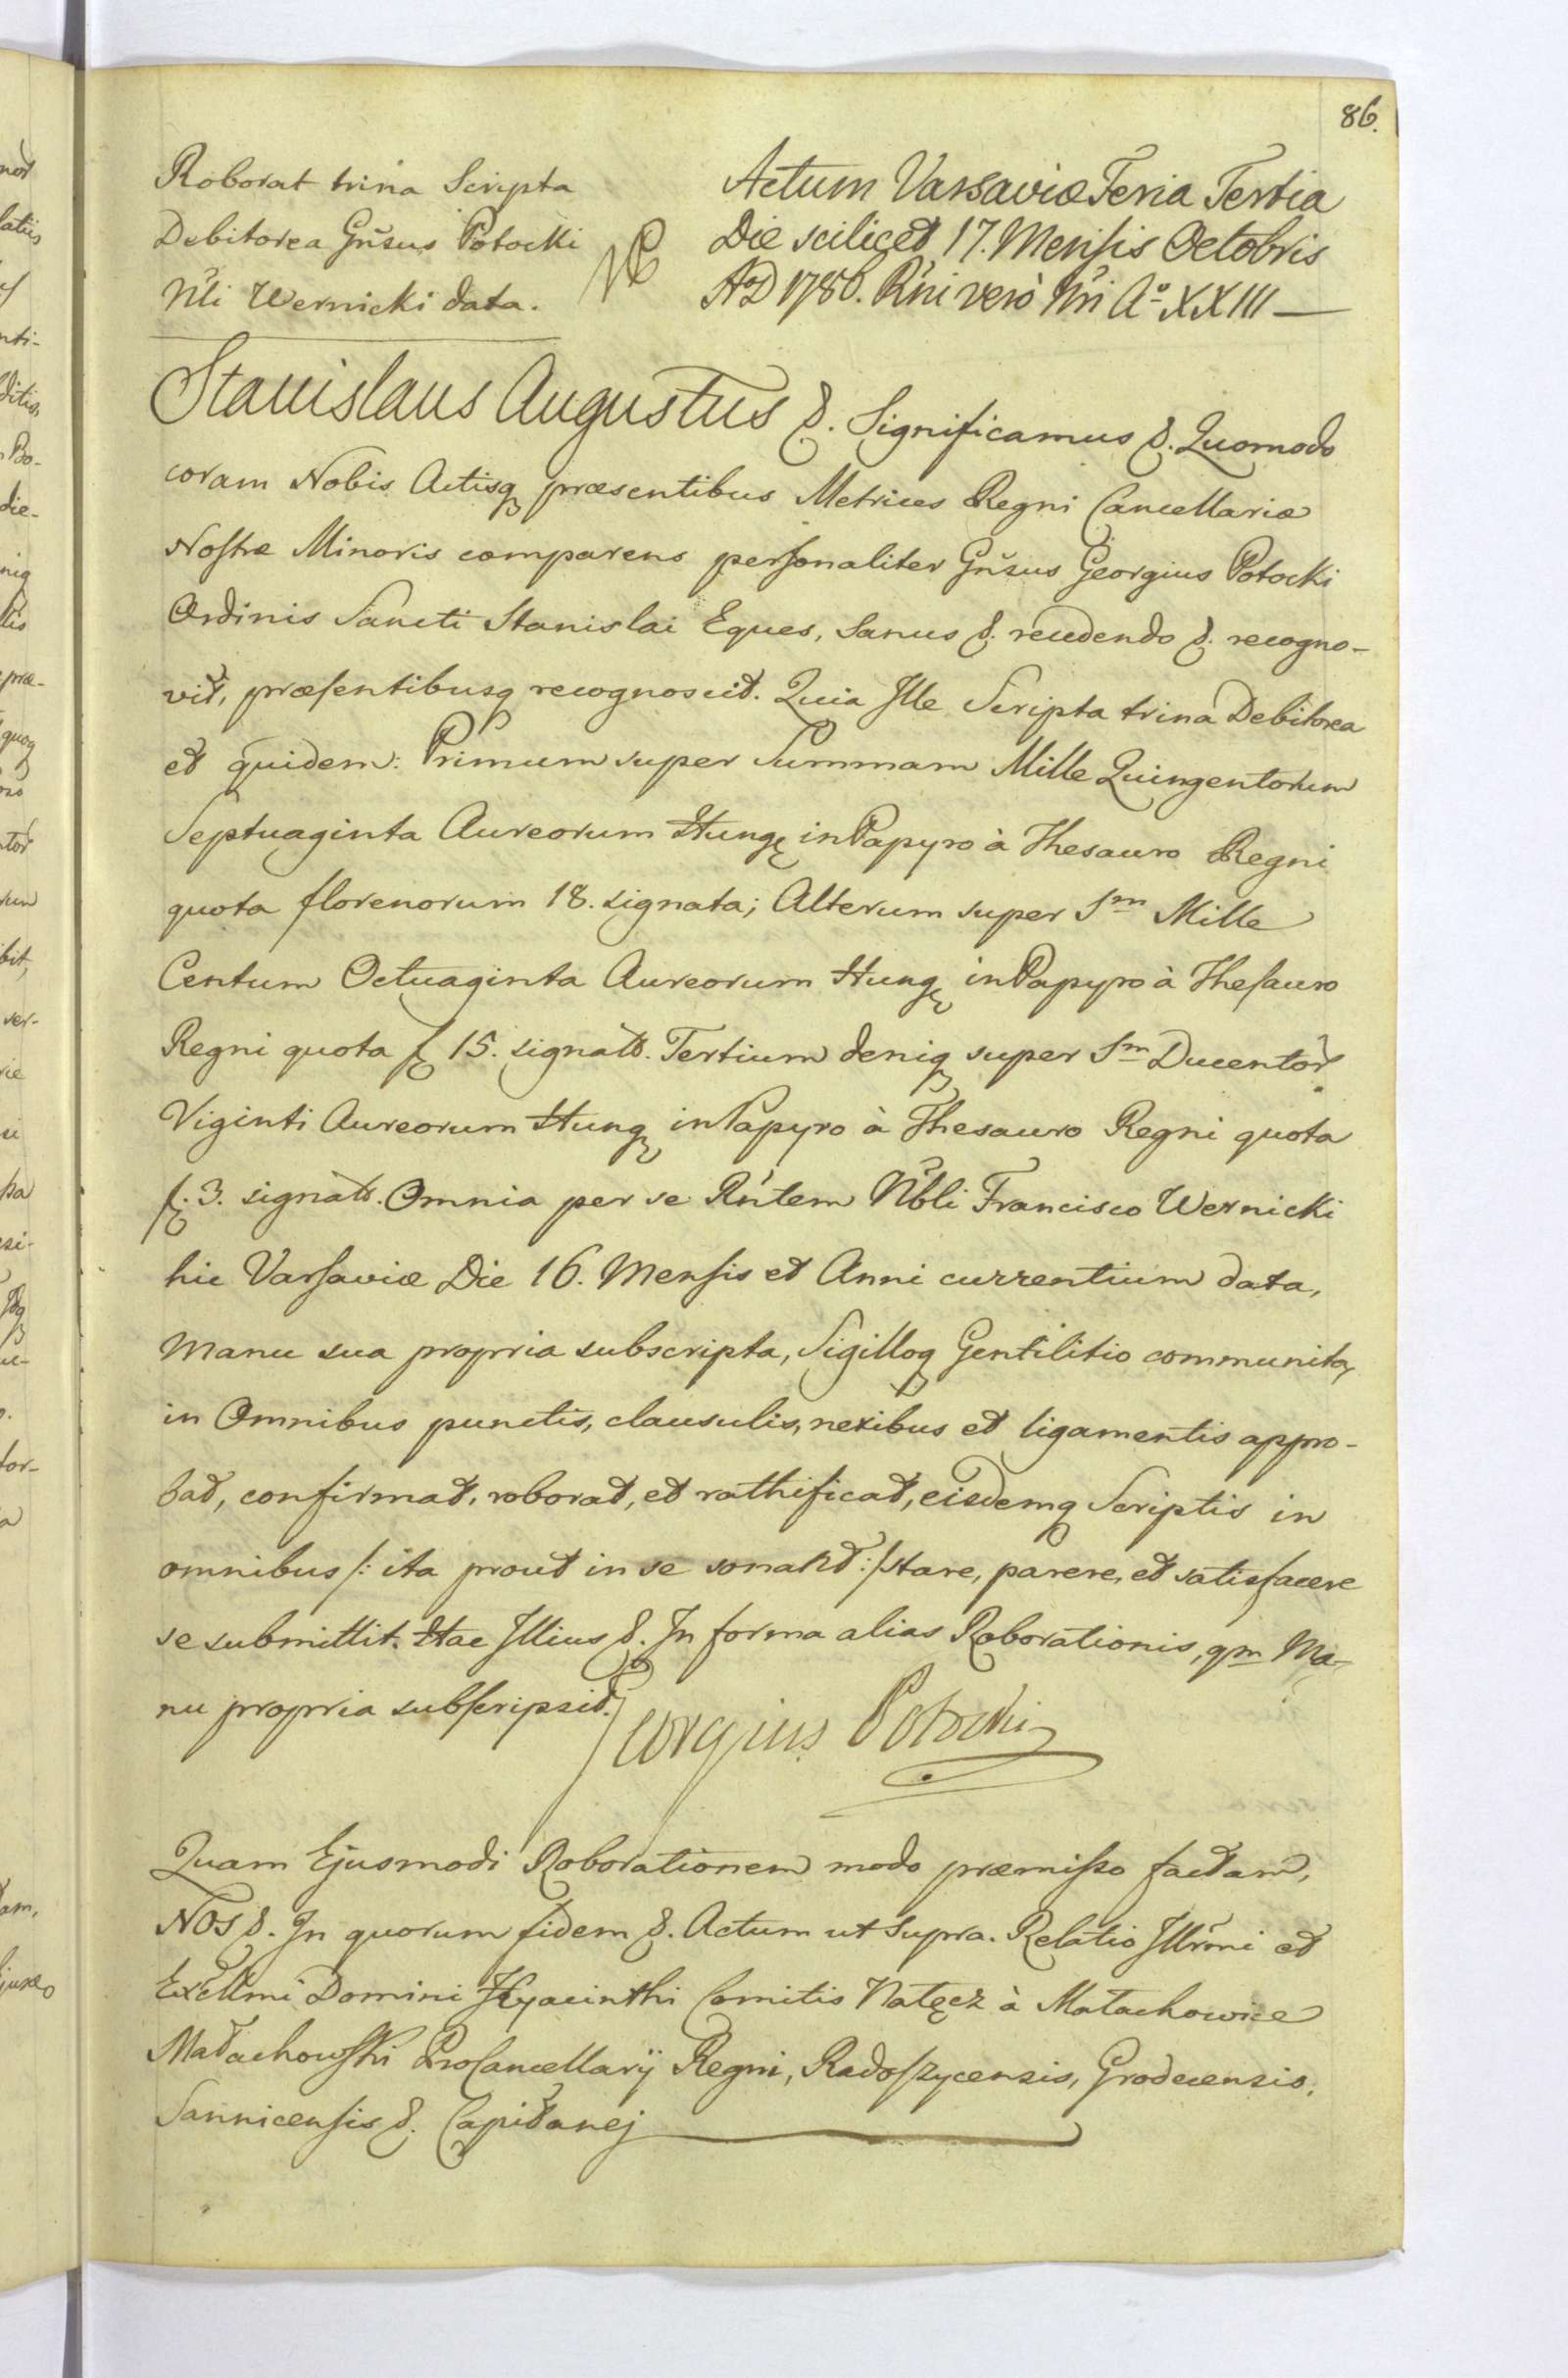 86.
Roborat trina Scripta
Debitorea Gnsus Potocki
Nli Wernicki data.
Actum Varsaviæ Feria Tertia
Die scilicet 17. Mensis Octobris
AoD 1786. Rni verò Nri Ao XXIII —
Stanislaus Augustus &. Significamus &. Quomodo
coram Nobis Actisq præsentibus Metrices Regni Cancellariæ
Nostræ Minoris comparens personaliter Gnsus Georgius Potocki
Ordinis Sancti Stanislai Eques, Sanus &. recedendo &. recogno-
vit, præsentibusq recognoscit. Quia Ille Scripta trina Debitorea
et quidem: Primum super Summam Mille Quingentorum
Septuaginta Aureorum Hung in Papyro à Thesauro Regni
quota florenorum 18. signata; Alterum super Sm Mille
Centum Octuaginta Aureorum Hung in Papyro à Thesauro
Regni quota f 15. signato. Tertium deniq super Sm Ducentor
Viginti Aureorum Hung in Papyro à Thesauro Regni quota
f. 3. signato. Omnia per se Rntem Nbli Francisco Wernicki
hic Varsaviæ Die 16. Mensis et Anni currentium data,
Manu sua propria subscripta, Sigilloq Gentilitio communita,
in Omnibus punctis, clausulis, nexibus et ligamentis appro-
bat, confirmat, roborat, et rathificat, eisdemq Scriptis in
omnibus /: ita prout in se sonant :/ stare, parere, et satisfacere
se submittit. Hac Illius &. In forma alias Roborationis, qm Ma-
nu propria subscripsit.
Georgius Potocki
Quam Ejusmodi Roborationem modo præmisso factam,
NOS &. In quorum fidem &. Actum ut supra. Relatio Illrmi et
Excllmi Domini Hyacinthi Comitis Nałęcz à Małachowice
Małachowski ProCancellarij Regni, Radoszycensis, Grodecensis,
Sannicensis &. Capitanej